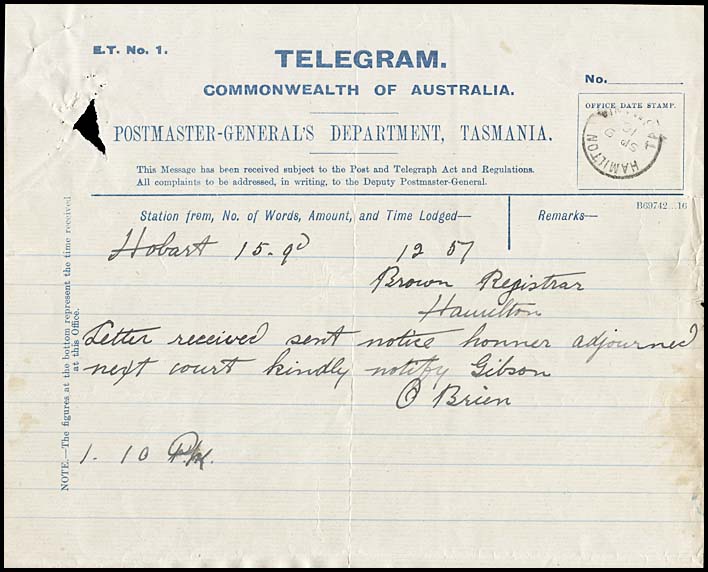 E.T. No. 1.
TELEGRAM.
COMMONWEALTH OF AUSTRALIA.
No.
OFFICE DATE STAMP.
HAMILTON
POSTMASTER-GENERAL'S DEPARTMENT, TASMANIA.
This Message has been received subject to the Post and Telegraph Act and Regulations.
All complaints to be addressed, in writing, to the Deputy Postmaster-General.
B69742...16
Station from, No. of Words, Amount, and Time Lodged—
Remarks—
Hobart 15. 9d 12 57
Brown Registrar
Hamilton
Letter received sent notice honner adjourned
next court kindly notify Gibson
O Brien
1. 10 P.M.
NOTE.—The figures at the bottom represent the time received
at this Office.